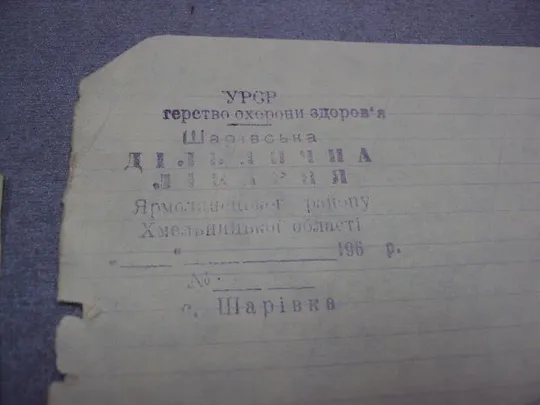 УРСР
терство охорони здоров'я
Шарівська
ДІЛЬНИЧНА
ЛІКАРНЯ
Ярмолинецького району
Хмельницької області
"____"____________196 р.
№ ____ ____
с. Шарівка